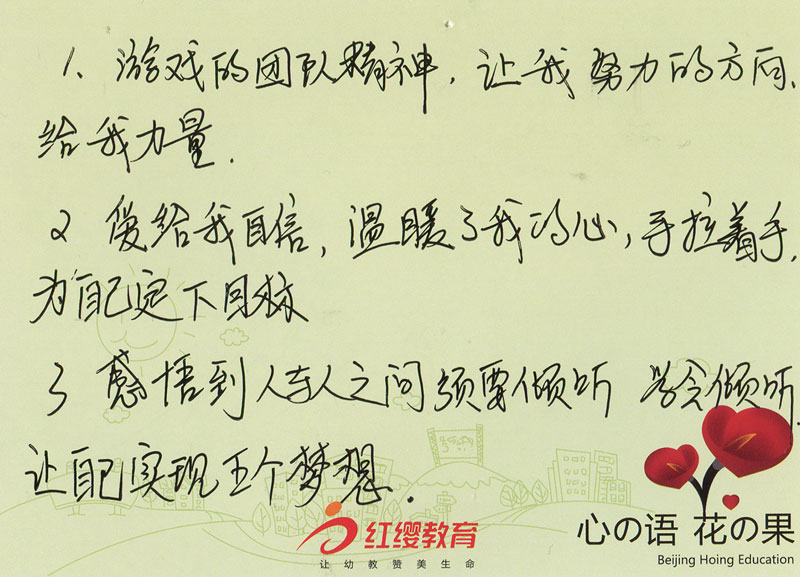 1、游戏的团队精神，让我努力的方向、
给我力量.
2 爱给我自信，温暖了我的心，手拉着手，
为自己定下目标
3 感悟到人与人之间须要倾听 学会倾听，
让自己实现五个梦想.
红缨教育
让幼教赞美生命
心の语 花の果
Beijing Hoing Education